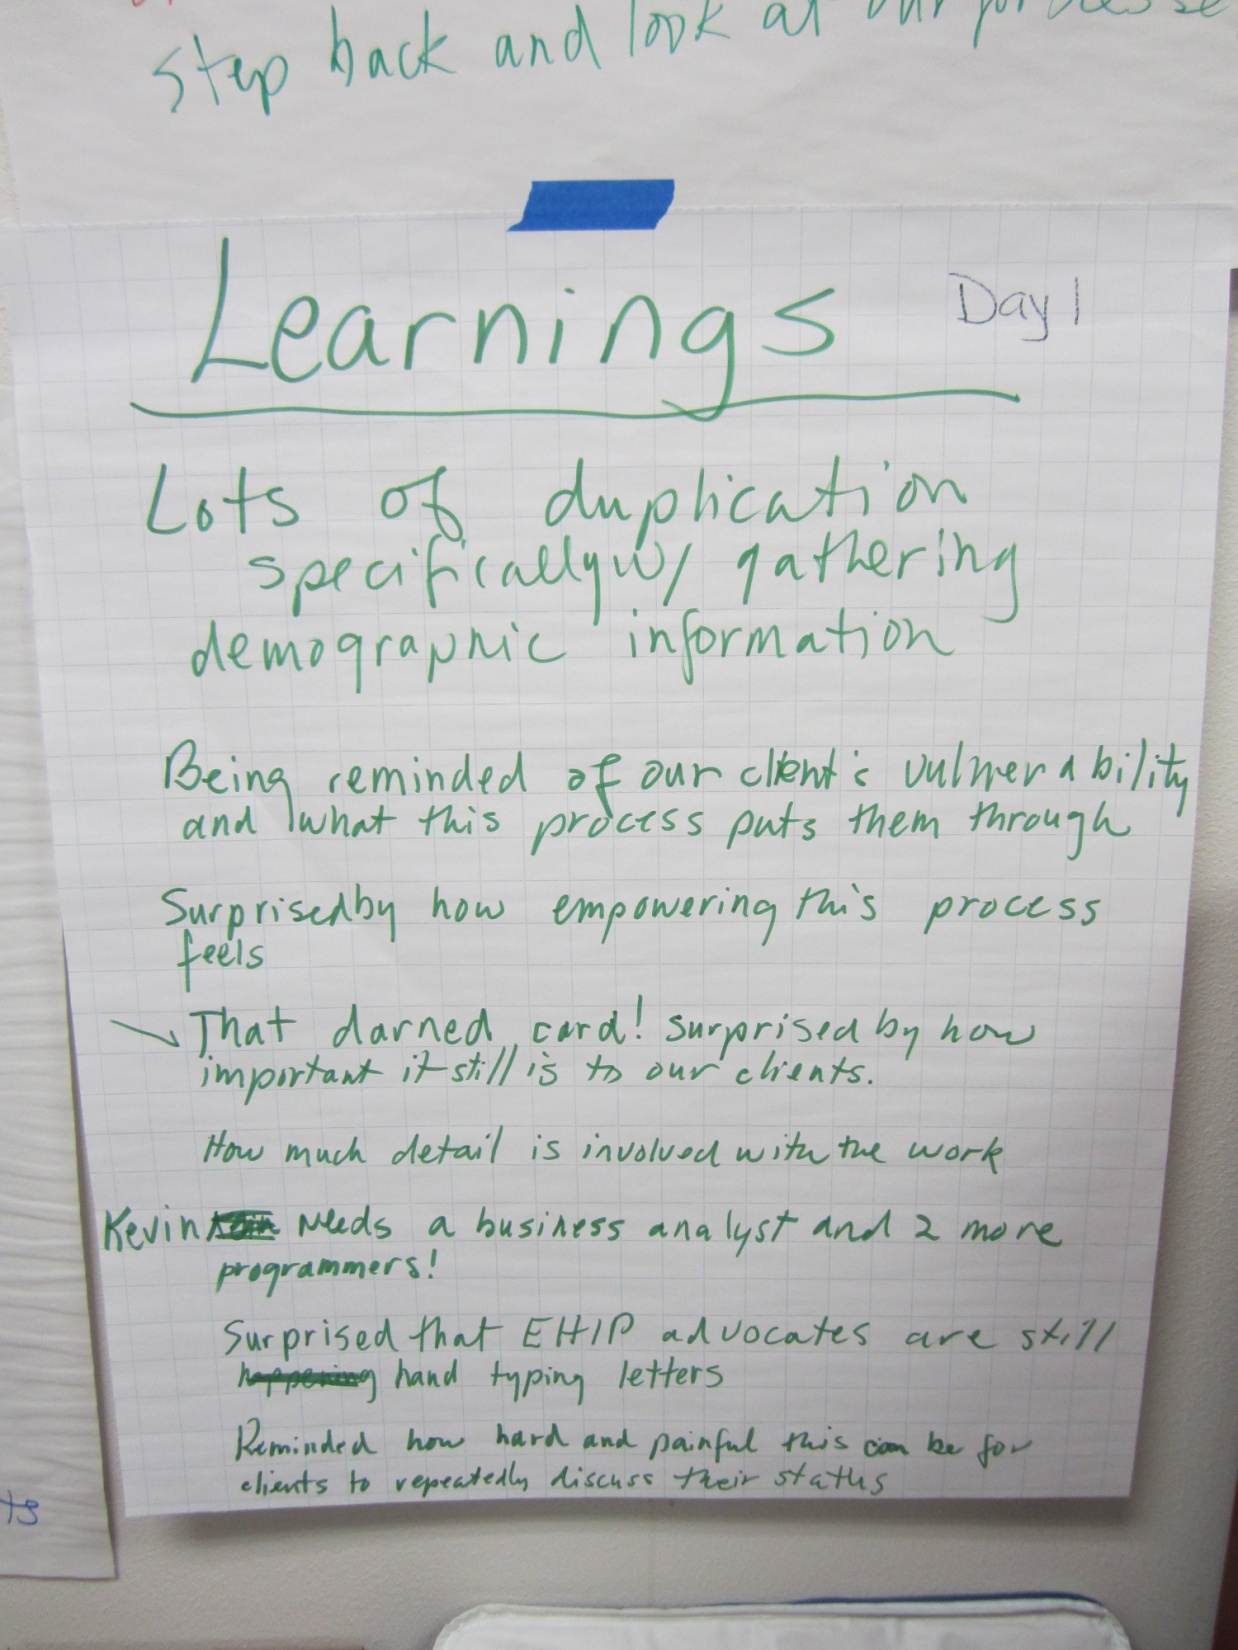 step back and look at our processe
Learnings
Day 1
Lots of duplication
specifically w/ gathering
demographic information
Being reminded of our client's vulnerability
and what this process puts them through
Surprised by how empowering this process
feels
That darned card! Surprised by how
important it still is to our clients.
How much detail is involved with the work
Kevin needs a business analyst and 2 more
programmers!
Surprised that EHIP advocates are still
happening hand typing letters
Reminded how hard and painful this can be for
clients to repeatedly discuss their status
ts